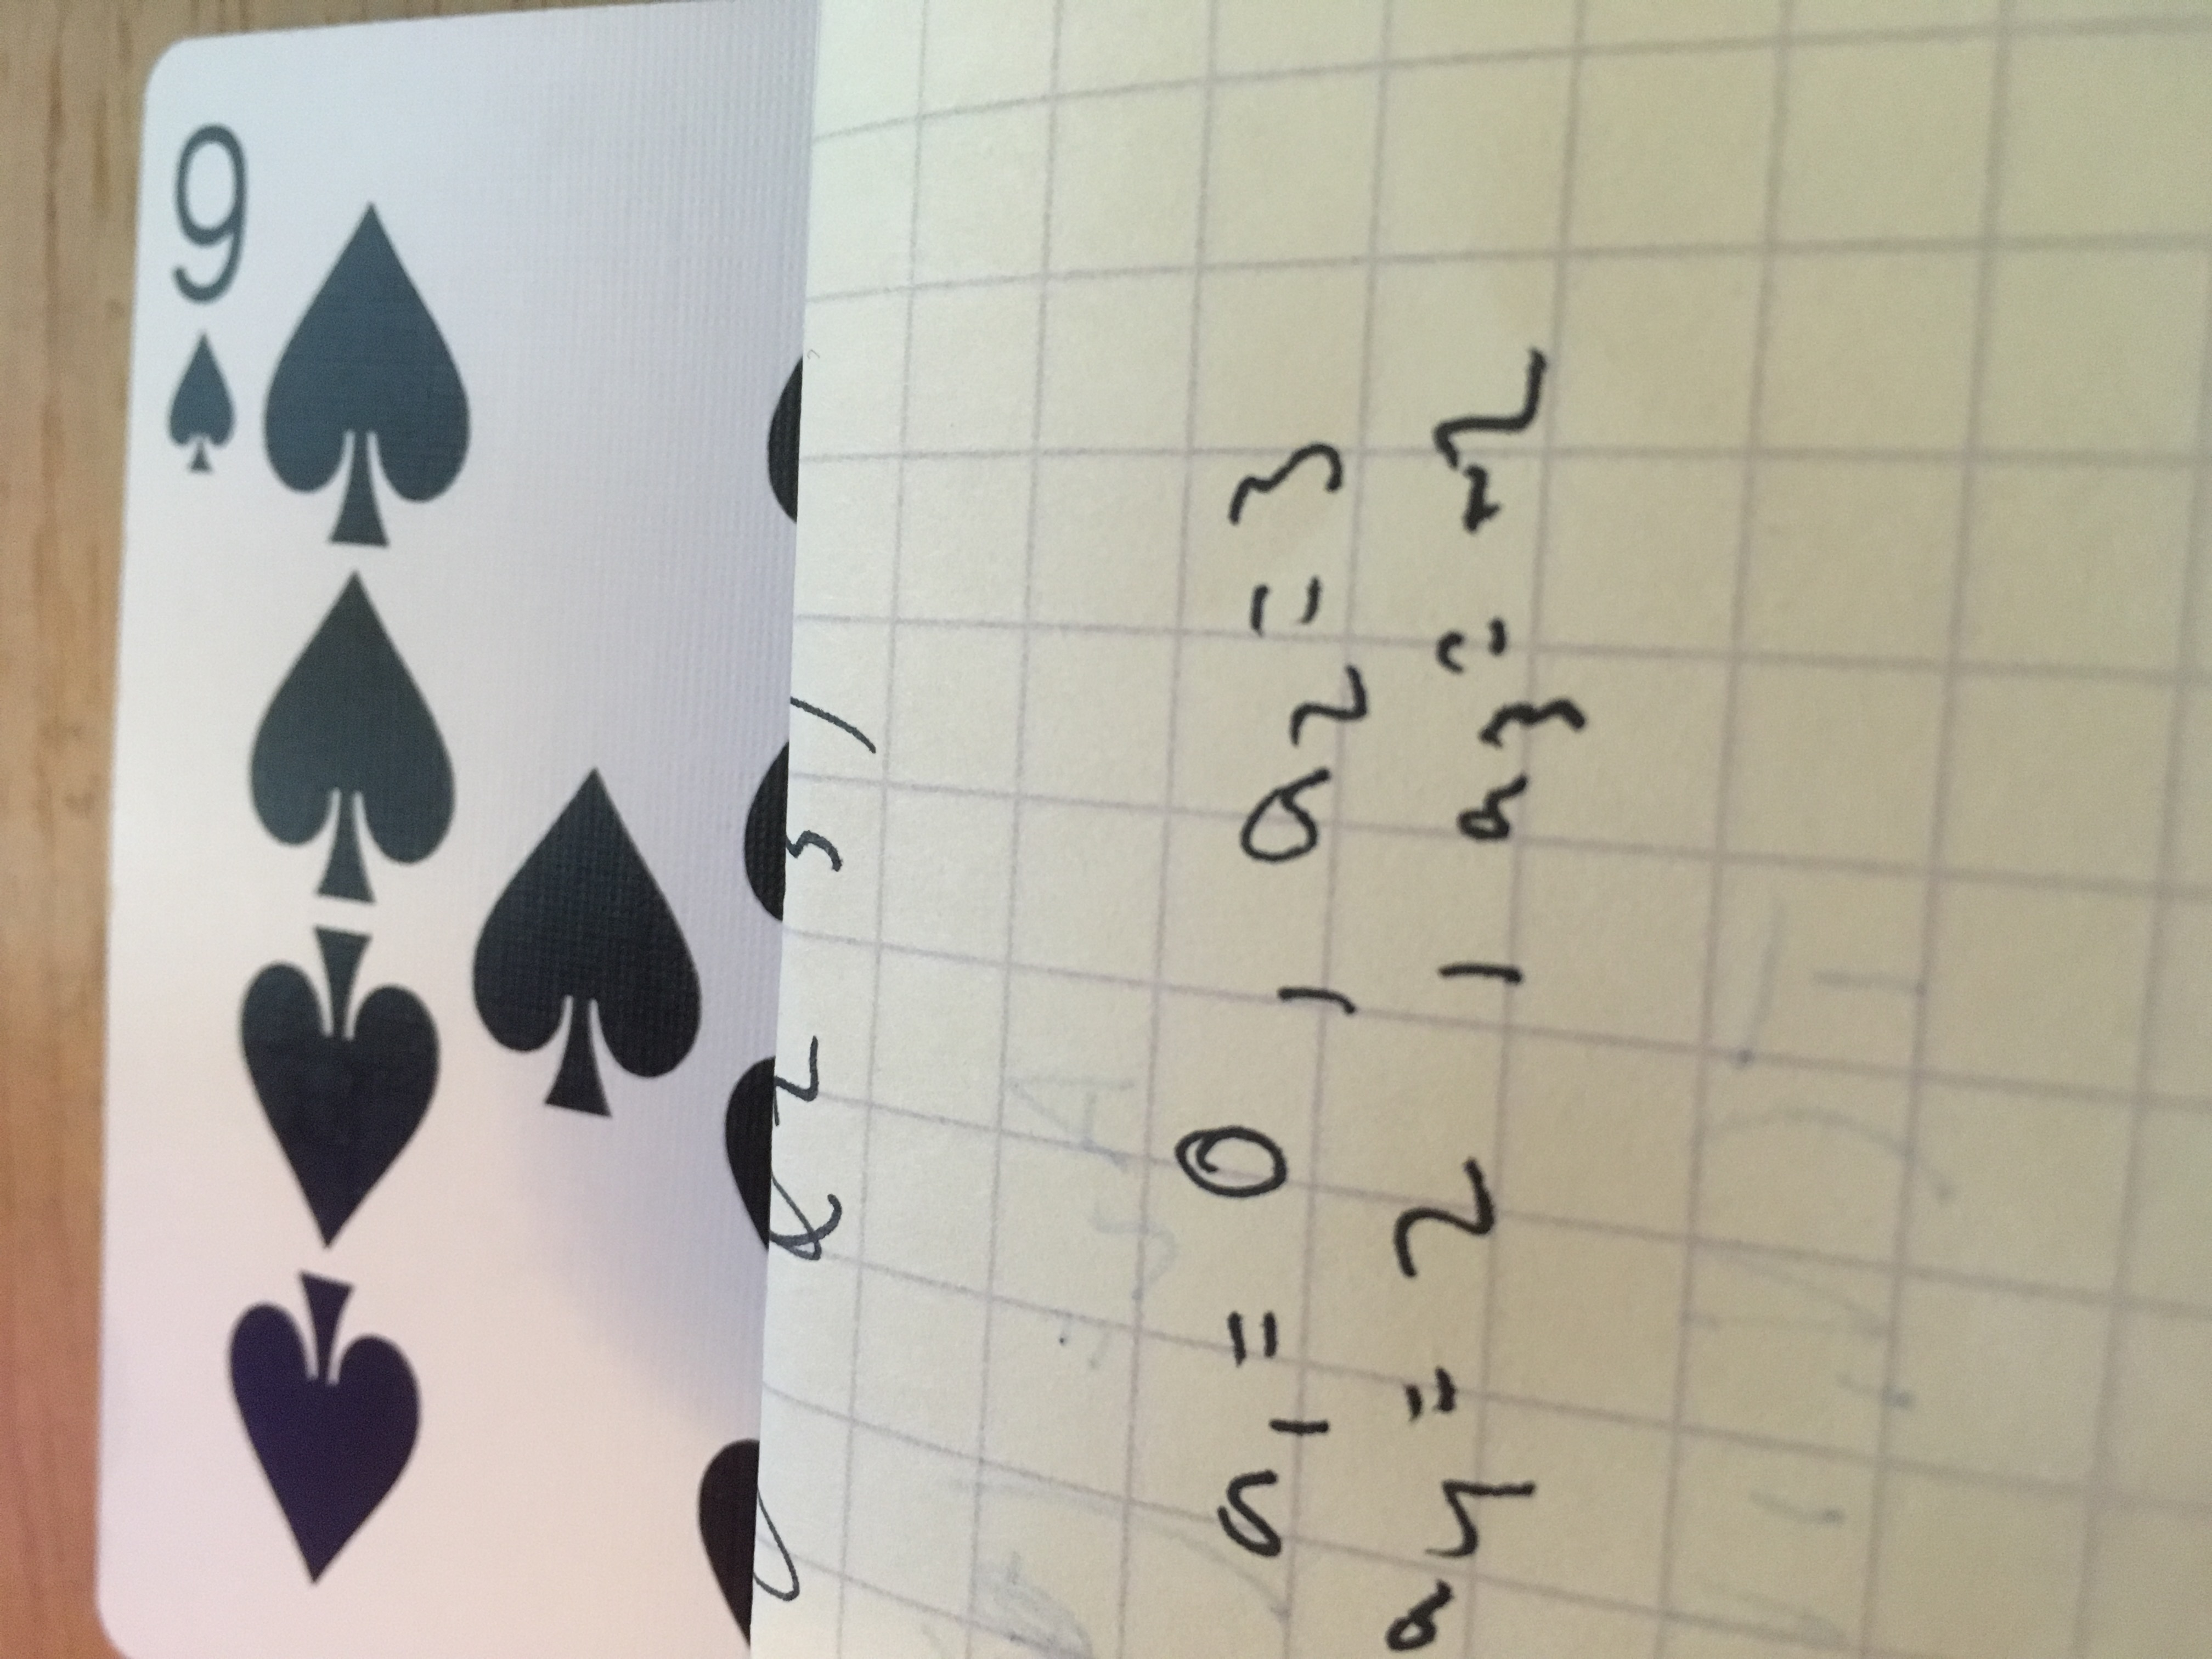 9
a₁ = 0 , a₂ = 3
a₄ = 2 , a₃ = -2